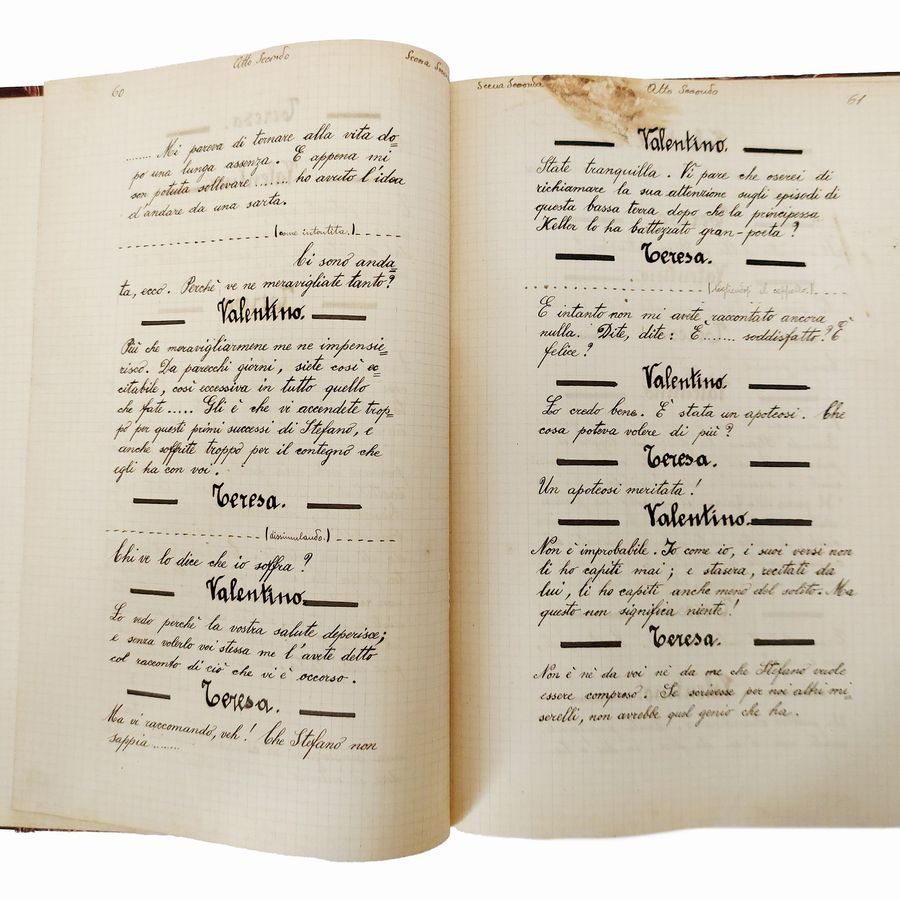 60
Atto Secondo
Scena Sec
....... Mi pareva di tornare alla vita do=
po una lunga assenza. E appena mi
son potuta sollevare ....... ho avuto l'idea
d'andare da una sarta.
(come intontita.)
Ci sono anda=
ta, ecco. Perchè ve ne meravigliate tanto?
Valentino.
Più che meravigliarmene me ne impensie=
risco. Da parecchi giorni, siete così ec=
citabile, così eccessiva in tutto quello
che fate ..... Gli è che vi accendete trop=
po per questi primi successi di Stefano, e
anche soffrite troppo per il contegno che
egli ha con voi.
Teresa.
(dissimulando.)
Chi ve lo dice che io soffra?
Valentino.
Lo vedo perchè la vostra salute deperisce;
e senza volerlo voi stessa me l'avete detto
col racconto di ciò che vi è occorso.
Teresa.
Ma vi raccomando, veh! Che Stefano non
sappia ........
Scena Seconda
Atto Secondo
61
Valentino.
State tranquilla. Vi pare che oserei di
richiamare la sua attenzione sugli episodi di
questa bassa terra dopo che la principessa
Keller lo ha battezzato gran-poeta?
Teresa.
(togliendosi il cappello.)
E intanto non mi avete raccontato ancora
nulla. Dite, dite: È....... soddisfatto? È
felice?
Valentino.
Lo credo bene. È stata un apoteosi. Che
cosa poteva volere di più?
Teresa.
Un apoteosi meritata!
Valentino.
Non è improbabile. Io come io, i suoi versi non
li ho capiti mai; e stasera, recitati da
lui, li ho capiti anche meno del solito. Ma
questo non significa niente!
Teresa.
Non è nè da voi nè da me che Stefano vuole
essere compreso. Se scrivesse per noi altri mi=
serelli, non avrebbe quel genio che ha.